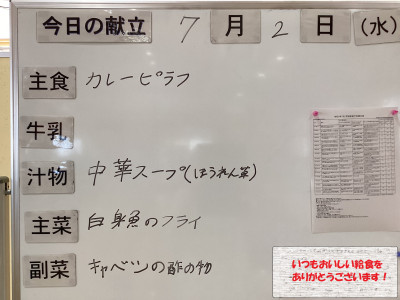 今日の献立 7月2日(水)
主食 カレーピラフ
牛乳
汁物 中華スープ(ほうれん草)
主菜 白身魚のフライ
副菜 キャベツの酢の物
いつもおいしい給食を
ありがとうございます!